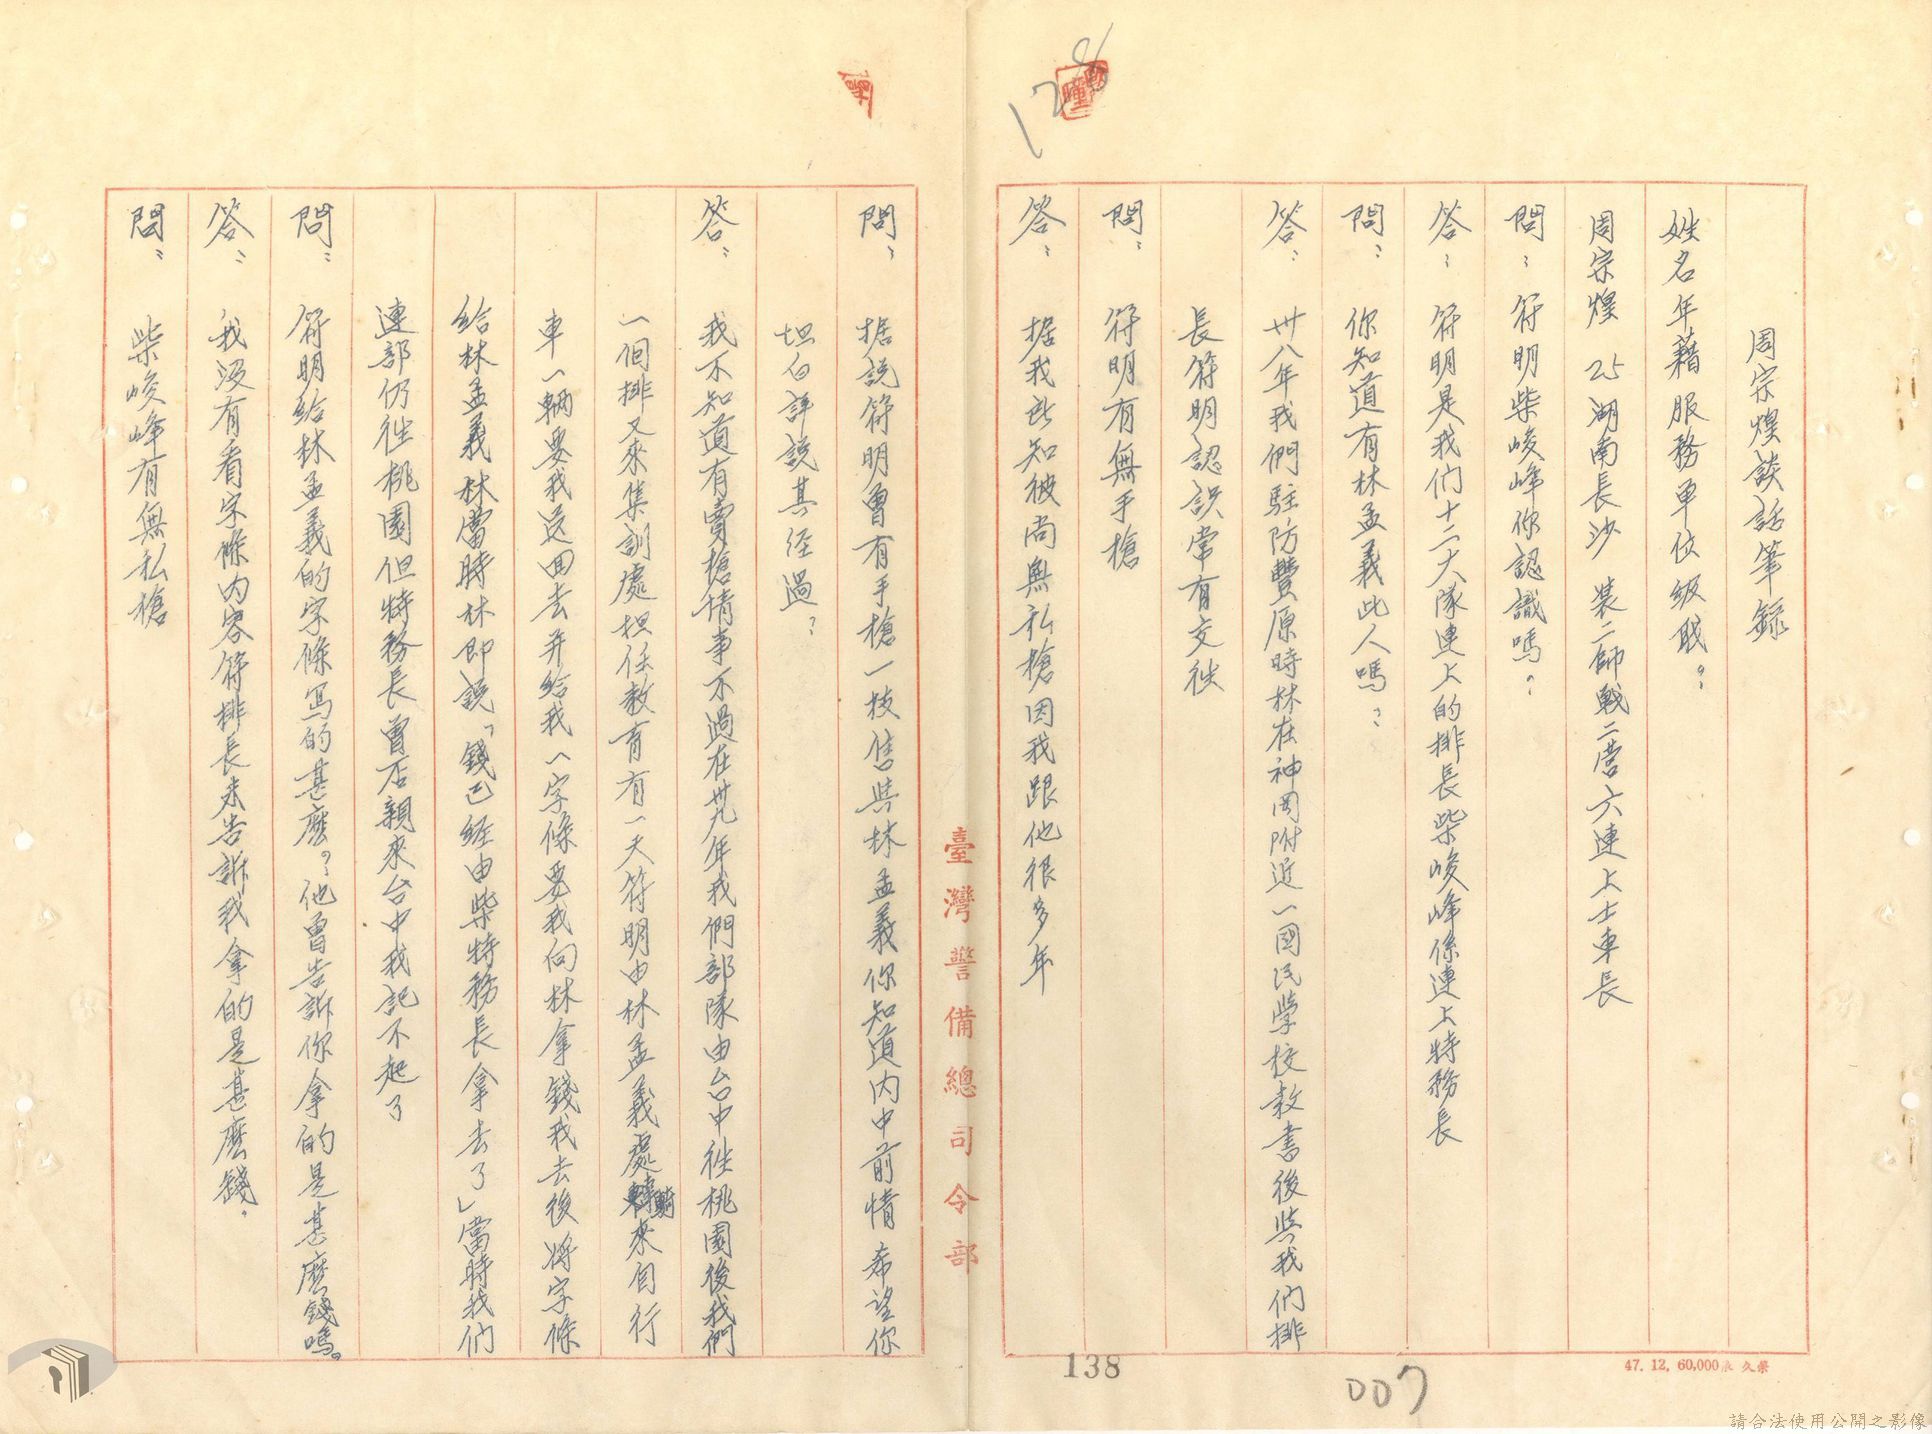 周宗煌談話筆錄
姓名年藉服務单位級职。:
周宗煌 25 湖南長沙 裝二師戰二营六連上士車長
問:符明柴峻峰你認識嗎?
答:符明是我们十二大隊連上的排長柴峻峰係連上特務長
問:你知道有林孟義此人嗎?
答:卅八年我們駐防豐原時林在神岡附近一國民學校教書後與我們排
長符明認識常有交往
問:符明有無手槍
答:据我所知彼尚無私槍因我跟他很多年
問:据説符明曾有手槍一枝售與林孟義你知道内中前情希望你
坦白詳説其经過?
答:我不知道有賣槍情事不過在卅九年我們部隊由台中往桃園後我們
一個排又來集訓處担任教育有一天符明由林孟義處轉來自行
車一輛要我送回去并給我一字條要我向林拿錢我去後将字條
給林孟義林當時林即説「錢已經由柴特務長拿去了」當時我们
連部仍往桃園但特務長曾否親來台中我記不起了
問:符明給林孟義的字條写的甚麼?他曾告訴你拿的是甚麼錢嗎。
答:我没有看字條内容符排長未告訴我拿的是甚麼錢。
問:柴峻峰有無私槍
臺灣警備總司令部
128
138
007
47. 12. 60,000 久榮
請合法使用公開之影像